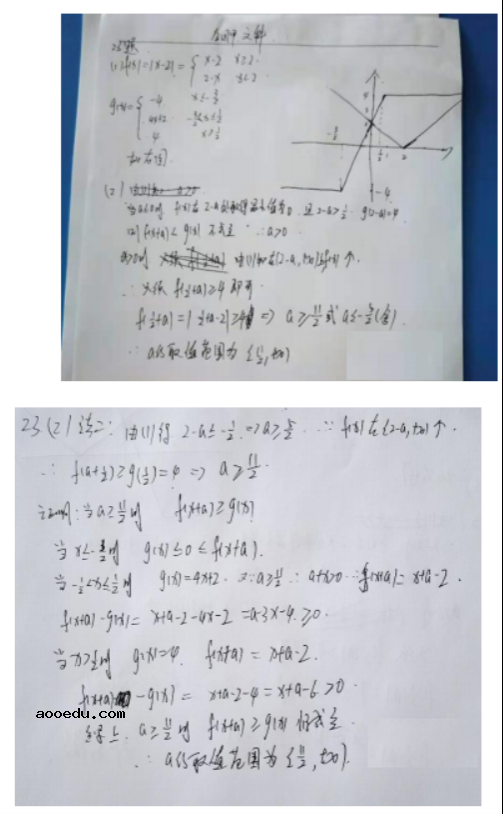 23题
(1) f(x)=|x-2|= { x-2 x≥2
2-x x<2
g(x)= { -4 x≤-3/2
4x+2 -3/2<x≤1/2
4 x>1/2
如右图.
(2)
当a≤0时 f(x)在2-a处取得最小值为0. 且2-a>1/2. g(2-a)=4
f(x+a)<g(x) ∴a>0.
a>0时 由(1)知在[2-a,+∞)上f(x)↑.
∴ 只须 f(1/2+a)≥4 即可
f(1/2+a)=|1/2+a-2|≥4 => a≥11/2 或 a≤-5/2(舍).
∴ a的取值范围为 [11/2,+∞)
23(2)法二: 由(1)得 2-a≤-1/2 => a≥5/2. ∵ f(x)在[2-a,+∞)↑.
∴ f(a+1/2)≥g(1/2)=4 => a≥11/2.
证明: 当a≥11/2时 f(x+a)≥g(x)
当x≤-3/2时 g(x)≤0≤f(x+a).
当-1/2<x≤1/2时 g(x)=4x+2. ∵a≥11/2 ∴a+x>0 ∴f(x+a)=x+a-2.
f(x+a)-g(x)=x+a-2-4x-2=a-3x-4≥0
当x>1/2时 g(x)=4. f(x+a)=x+a-2.
f(x+a)-g(x)=x+a-2-4=x+a-6>0.
aooedu.com
综上. a≥11/2时 f(x+a)≥g(x)恒成立.
∴ a的取值范围为[11/2,+∞).